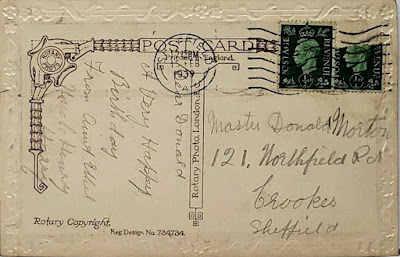 POSTCARD
Printed in England.
ROTARY PHOTO
1939
POSTAGE
HALFPENNY
POSTAGE
HALFPENNY
Dear Donald
A Very Happy
Birthday
From Aunt Ethel
Rotary Photo, London.
Master Donald Morton
121, Northfield Rd
Crookes
Sheffield
Rotary Copyright.
Reg. Design No. 734,734.